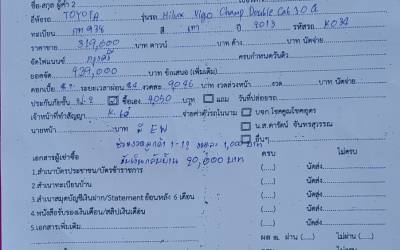 ชื่อ-สกุล ผู้ค้ำ 2
ยี่ห้อรถ TOYOTA รุ่นรถ Hilux Vigo Champ Double Cab 3.0 G
ทะเบียน กท 934 สี เทา ปี 2013 รหัสรถ K034
ราคาขาย 319,000 บาท ดาวน์ บาท ค้าง บาท นัดจ่าย
จัดไฟแนนซ์ กรุงศรี ครบกำหนดวันที่
ยอดจัด 429,000 บาท ข้อเสนอ (เพิ่มเติม)
ดอกเบี้ย ระยะเวลาผ่อน 84 งวดละ บาท งวดล่วงหน้า งวด นัดจ่าย
ประกันภัยชั้น ซื้อเอง 9050 บาท แถม วันที่ปล่อยรถ
เจ้าหน้าที่ทำสัญญา จ่ายค่าตัวรถในนาม บจก.โชคคูณโชคศุอุดร
นายหน้า บาท มี EW น.ส.ดารัตน์ จันทรสุวรรณ
1-12 งวดละ 1,000 บาท อื่นๆ
เอกสารผู้เช่าซื้อ 90,000 บาท ครบ ไม่ครบ
1.สำเนาบัตรประชาชน/บัตรข้าราชการ (....) (....) นัดส่ง
2.สำเนาทะเบียนบ้าน (....) (....) นัดส่ง
3.สำเนาสมุดบัญชีเงินฝาก/Statement ย้อนหลัง 6 เดือน (....) (....) นัดส่ง
4.หนังสือรับรองเงินเดือน/สลิปเงินเดือน (....) (....) นัดส่ง
5.เอกสารเพิ่มเติม (....) (....) นัดส่ง
ผ่าน (....) ไม่ผ่าน (....)